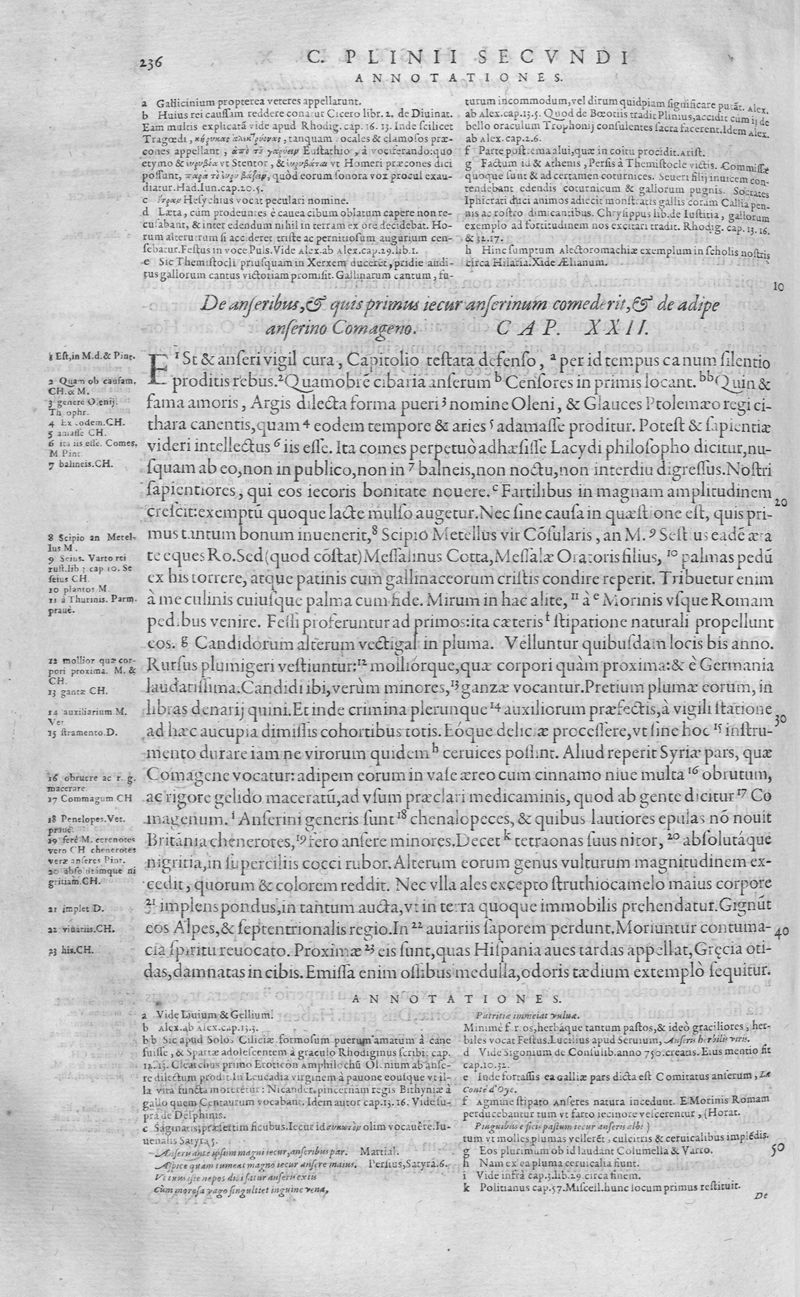 236
C. PLINII SECVNDI
ANNOTATIONES.
a Gallicinium propterea veteres appellarunt.
b Huius rei caussam reddere conatur Cicero libr. 2. de Diuinat.
Eam multis explicatã vide apud Rhodig. cap. 16. 13. Inde scilicet
Tragœdi, tanquam vocales & clamosos præ-
cones appellant, Eustathio, à vociferando: quo
etymo & vt Stentor, & vt Homeri præcones dici
possunt, quòd eorum sonora vox procul exau-
diatur. Had. Iun. cap. 20. 5.
c Hesychius vocat peculiari nomine.
d Læta, cùm prodeuntes è cauea cibum oblatum capere non re-
cusabant, & inter edendum nihil in terram ex ore decidebat. Ho-
rum alterutrum si accideret triste ac pernitiosum augurium cen-
sebatur. Festus in voce Puls. Vide Alex. ab Alex. cap. 29. lib. 1.
e Sic Themistocli priusquam in Xerxem duceret, pridie audi-
tus gallorum cantus victoriam promisit. Gallinarum cantum, fu-
turum incommodum, vel dirum quidpiam significare putãt. Alex.
ab Alex. cap. 13. 5. Quod de Bœotiis tradit Plinius, accidit cum ii de
bello oraculum Trophonij consulentes sacra facerent. Idem Alex.
ab Alex. cap. 2. 6.
f Parte postrema alui, quæ in coitu procidit. Arist.
g Factum id & Athenis, Persis à Themistocle victis. Commissæ
quoque sunt & ad certamen coturnices. Seueri filij inuicem con-
tendebant edendis coturnicum & gallorum pugnis. Socrates
Iphicrati duci animos adiecit monstratis gallis coram Callia pen-
nis ac rostro dimicantibus. Chrysippus lib. de Iustitia, gallorum
exemplo ad fortitudinem nos excitari tradit. Rhodig. cap. 13. 16.
& 32. 17.
h Hinc sumptum Alectoromachiæ exemplum in scholis nostris
circa Hilaria. Vide Ælianum.
10
De anseribus, & quis primus iecur anserinum comederit, & de adipe
anserino Comageno. CAP. XXII.
1 Est, in M. d. & Pint.
E 1 St & anseri vigil cura, Capitolio testata defenso, a per id tempus canum silentio
2 Quam ob causam.
CH. & M.
proditis rebus. 2 Quamobrẽ cibaria anserum b Censores in primis locant. bb Quin &
3 genere O.enij.
Th ophr.
fama amoris, Argis dilecta forma pueri 3 nomine Oleni, & Glauces Ptolemæo regi ci-
4 Ex eodem. CH.
5 amasse CH.
thara canentis, quam 4 eodem tempore & aries 5 adamasse proditur. Potest & sapientiæ
6 ita iis esse. Comes,
M Pint.
videri intellectus 6 iis esse. Ita comes perpetuò adhæsisse Lacydi philosopho dicitur, nu-
7 balineis. CH.
squam ab eo, non in publico, non in 7 balneis, non noctu, non interdiu digressus. Nostri
sapientiores, qui eos iecoris bonitate nouere. c Fartilibus in magnam amplitudinem
20
crescit: exemptũ quoque lacte mulso augetur. Nec sine causa in quæstione est, quis pri-
8 Scipio an Metel-
lus M.
mus tantum bonum inuenerit, 8 Scipio Metellus vir Cõsularis, an M. 9 Sestius eadẽ æta
9 Seius. Varro rei
rust. lib 3 cap 10. Se
steius CH.
te eques Ro. Sed (quod cõstat) Messalinus Cotta, Messalæ Oratoris filius, 10 palmas pedũ
ex his torrere, atque patinis cum gallinaceorum cristis condire reperit. Tribuetur enim
10 plantos M.
11 à Thurinis. Parm.
prauè.
à me culinis cuiusque palma cum fide. Mirum in hac alite, 11 à e Morinis vsque Romam
pedibus venire. Fessi proferuntur ad primos: ita cæteris f stipatione naturali propellunt
eos. g Candidorum alterum vectigal in pluma. Velluntur quibusdam locis bis anno.
12 mollior quæ cor-
pori proxima. M. &
CH.
Rursus plumigeri vestiuntur: 12 molliórque, quæ corpori quàm proxima: & è Germania
13 gantæ CH.
laudatissima. Candidi ibi, verùm minores, 13 ganzæ vocantur. Pretium plumæ eorum, in
14 auxiliarium M.
Vet
libras denarij quini. Et inde crimina plerunque 14 auxiliorum præfectis, à vigili statione
30
15 stramento. D.
ad hæc aucupia dimissis cohortibus totis. Eóque deliciæ processere, vt sine hoc 15 instru-
mento durare iam ne virorum quidem h ceruices possint. Aliud reperit Syriæ pars, quæ
16 obruere ac r. g.
macerare
Comagene vocatur: adipem eorum in vase æreo cum cinnamo niue multa 16 obrutum,
17 Commagum CH
ac rigore gelido maceratũ, ad vsum præclari medicaminis, quod ab gente dicitur 17 Co
18 Penelopes. Vet.
prauè.
magenum. i Anserini generis sunt 18 chenalopeces, & quibus lautiores epulas nõ nouit
19 ferè M. cerenotes
vero CH chenerotes
veræ anseres Pint.
Britãnia chenerotes, 19 fero ansere minores. Decet k tetraonas suus nitor, 20 absolutáque
20 absolutamque ni
gritiam. CH.
nigritia, in superciliis cocci rubor. Alterum eorum genus vulturum magnitudinem ex-
cedit, quorum & colorem reddit. Nec vlla ales excepto struthiocamelo maius corpore
21 implet D.
21 implens pondus, in tantum aucta, vt in terra quoque immobilis prehendatur. Gignũt
22 viuariis. CH.
eos Alpes, & septentrionalis regio. In 22 auiariis saporem perdunt. Moriuntur contuma-
40
23 his. CH.
cia spiritu reuocato. Proximæ 23 eis sunt, quas Hispania aues tardas appellat, Gręcia oti-
das, damnatas in cibis. Emissa enim ossibus medulla, odoris tædium extemplò sequitur.
ANNOTATIONES.
a Vide Liuium & Gellium.
b Alex. ab Alex. cap. 13. 3.
bb Sic apud Solos Ciliciæ formosum puerum amatum à cane
fuisse, & Spartæ adolescentem à graculo Rhodiginus scribit cap.
13. 15. Clearchus primo Eroticωn Amphilochũ Olenium ab anse-
re dilectum prodit. In Leucadia virginem à pauone eousque vt il-
la vita functa moreretur: Nicander, pincernam regis Bithyniæ à
gallo quem Centaurum vocabant. Idem autor cap. 13. 16. Vide su-
pra de Delphinis.
c Saginatis; præsertim ficubus. Iecur id olim vocauêre. Iu-
uenalis Satyra 5.
Anseris ante ipsum magni iecur, anseribus par. Martial.
Aspice quam tumeat magno iecur ansere maius. Persius, Satyra. 6.
Vt tuus iste nepos olim satur anseris extis
Cùm morosa vago singultiet inguine vena,
Patritiæ immeiat vuluæ.
Minimè f ros, herbáque tantum pastos, & ideò graciliores, her-
biles vocat Festus. Lucilius apud Seruium, Anseris herbilis virus.
d Vide Sigonium de Consulib. anno 750. creatis. Eius mentio fit
cap. 10. 32.
e Inde fortassis ea galliæ pars dicta est Comitatus anserum, La
Conté d'Oye.
f Agmine stipato Anseres natura incedunt. E Morinis Romam
perducebantur tum vt farto iecinore vescerentur, (Horat.
Pinguibus & ficis pastum iecur anseris albi)
tum vt molles plumas vellerẽt, culcitris & ceruicalibus implẽdis.
50
g Eos plurimum ob id laudant Columella & Varro.
h Nam ex ea pluma ceruicalia fiunt.
i Vide infrà cap. 3. lib. 29. circa finem.
k Politianus cap. 57. Miscell. hunc locum primus restituit.
De